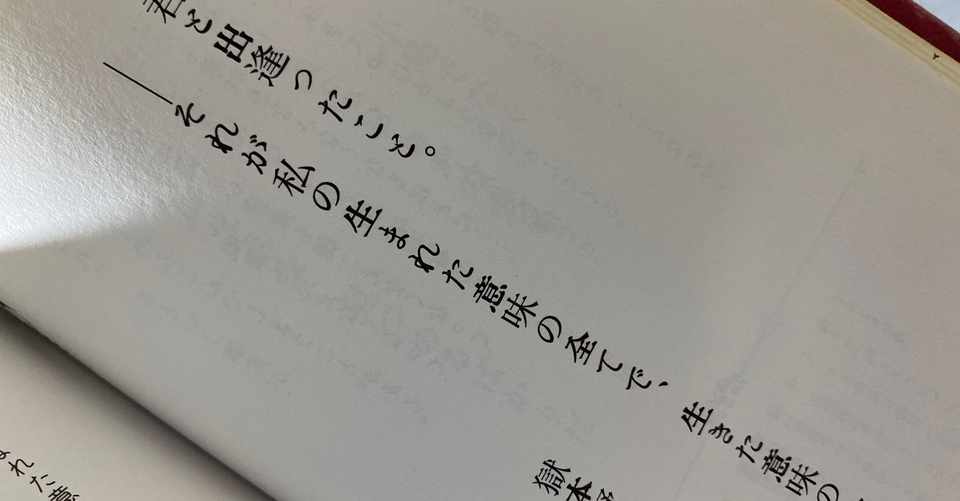 君と出逢ったこと。
――それが私の生まれた意味の全てで、生きた意味の
嶽本
れた意